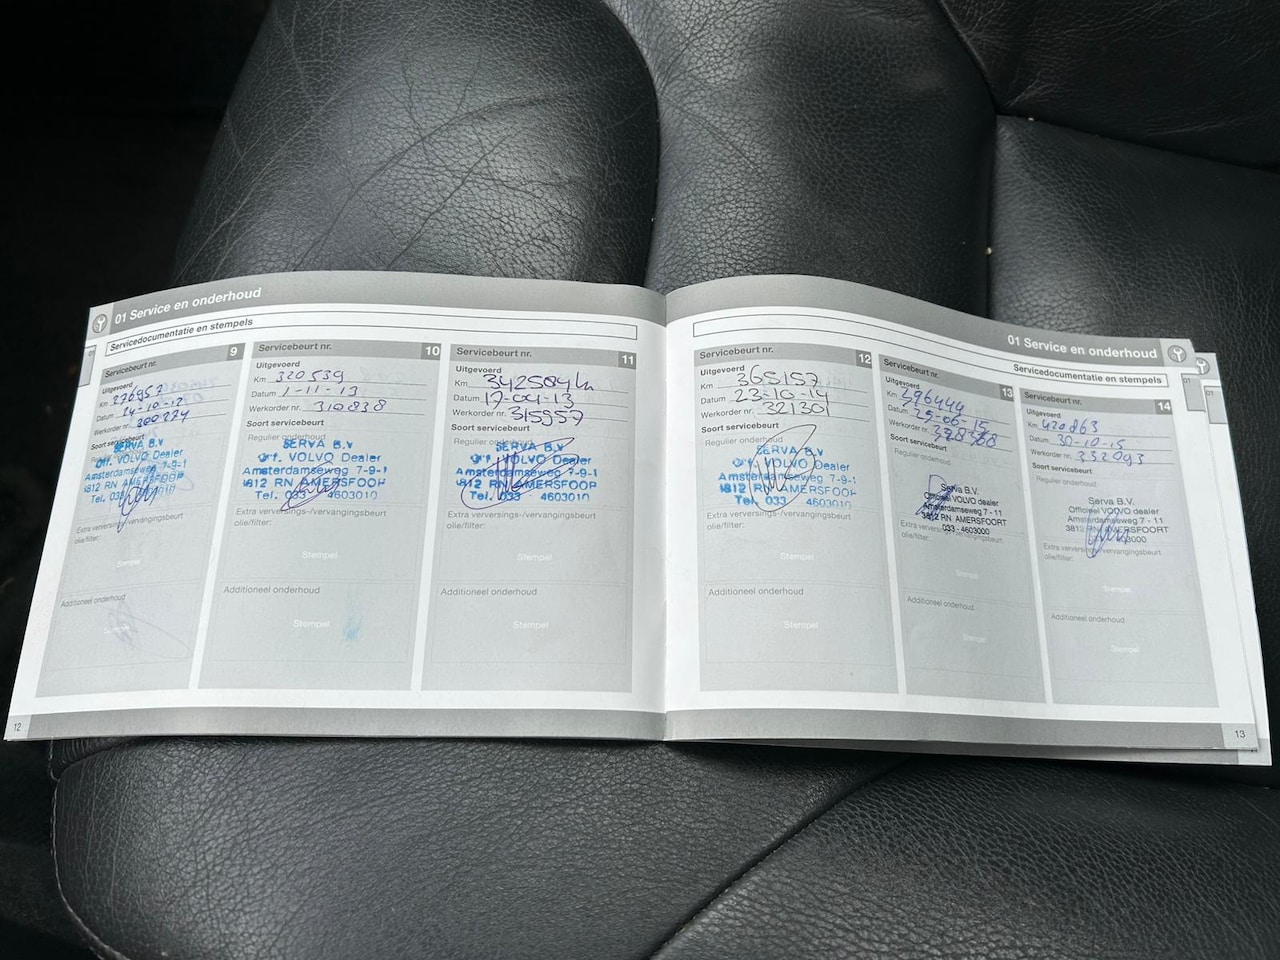 01 Service en onderhoud
Servicedocumentatie en stempels
Servicebeurt nr. 9
Uitgevoerd
Km 276957
Datum 24-10-12
Werkorder nr. 300274
Soort servicebeurt
Regulier
SERVA B.V
Off. VOLVO Dealer
Amsterdamseweg 7-9-1
3812 RN AMERSFOOP
Tel. 033
Extra verversings-/vervangingsbeurt
olie/filter:
Stempel
Additioneel onderhoud
Servicebeurt nr. 10
Uitgevoerd
Km 320539
Datum 1-11-13
Werkorder nr. 310838
Soort servicebeurt
Regulier onderhoud:
SERVA B.V
Off. VOLVO Dealer
Amsterdamseweg 7-9-1
3812 RN AMERSFOOP
Tel. 033 4603010
Extra verversings-/vervangingsbeurt
olie/filter:
Stempel
Additioneel onderhoud
Stempel
Servicebeurt nr. 11
Uitgevoerd
Km 342504
Datum 17-04-13
Werkorder nr. 315957
Soort servicebeurt
Regulier onderhoud:
SERVA B.V
Off. VOLVO Dealer
Amsterdamseweg 7-9-1
3812 RN AMERSFOOP
Tel. 033 4603010
Extra verversings-/vervangingsbeurt
olie/filter:
Stempel
Additioneel onderhoud
Stempel
12
01 Service en onderhoud
Servicedocumentatie en stempels
Servicebeurt nr. 12
Uitgevoerd
Km 365157
Datum 23-10-14
Werkorder nr. 321301
Soort servicebeurt
Regulier onderhoud:
SERVA B.V
Off. VOLVO Dealer
Amsterdamseweg 7-9-1
3812 RN AMERSFOOP
Tel. 033 4603010
Extra verversings-/vervangingsbeurt
olie/filter:
Stempel
Additioneel onderhoud
Stempel
Servicebeurt nr. 13
Uitgevoerd
Km 396444
Datum 25-06-15
Werkorder nr.
Soort servicebeurt
Regulier onderhoud:
Serva B.V.
Officieel VOLVO dealer
Amsterdamseweg 7 - 11
3812 RN AMERSFOORT
033 - 4603000
Extra verversings-/vervangingsbeurt
olie/filter:
Stempel
Additioneel onderhoud
Stempel
Servicebeurt nr. 14
Uitgevoerd
Km 420863
Datum 30-10-15
Werkorder nr. 332093
Soort servicebeurt
Regulier onderhoud:
Serva B.V.
Officieel VOLVO dealer
Amsterdamseweg 7 - 11
3812 RN AMERSFOORT
Extra verversings-/vervangingsbeurt
olie/filter:
Stempel
Additioneel onderhoud
Stempel
13
01
01